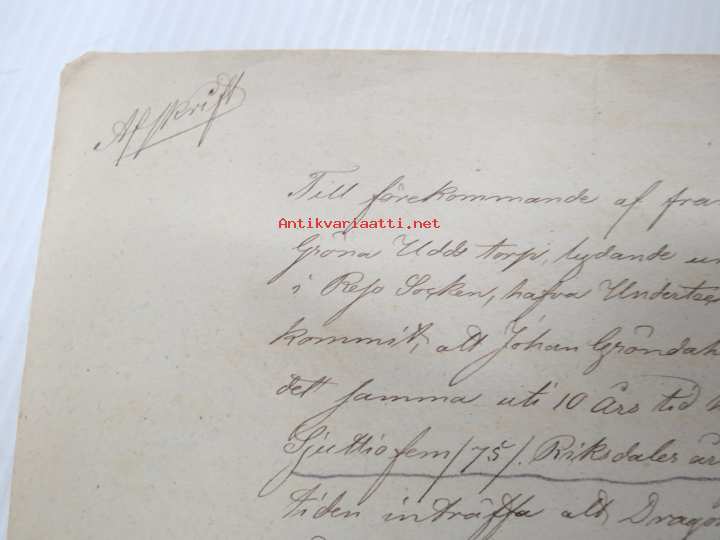 Afskrift
Till förekommande af fra
Antikvariaatti.net
Gröna Udds torp, lydande un
i Reso Socken, hafva Undertec
kommit, att Johan Gröndah
det samma uti 10 års tid
Sjuttiofem /75/. Riksdaler år
tiden inträffa att Dragon